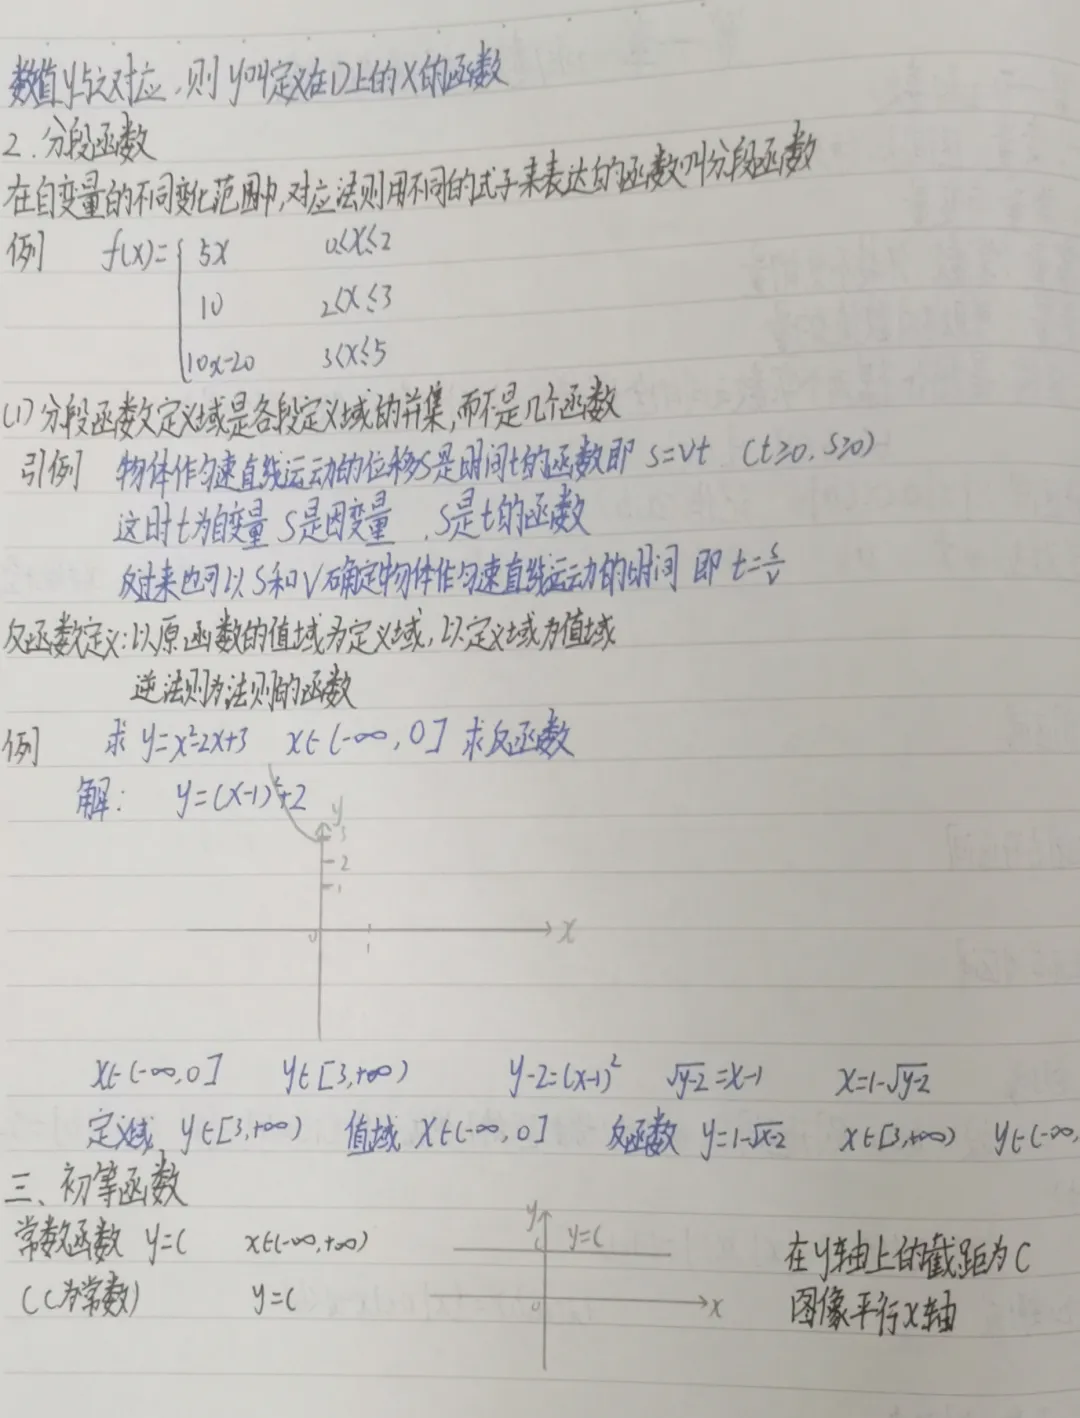 数值y与之对应,则y叫定义在D上的X的函数
2.分段函数
在自变量的不同变化范围中,对应法则用不同的式子来表达的函数叫分段函数
例 f(x)={ 5x 0≤x≤2
10 2<x≤3
10x-20 3<x≤5
(1)分段函数定义域是各段定义域的并集,而不是几个函数
引例 物体作匀速直线运动的位移S是时间t的函数即 S=Vt (t≥0,S≥0)
这时t为自变量 S是因变量 .S是t的函数
反过来也可以S和V确定物体作匀速直线运动的时间 即 t=S/V
反函数定义:以原函数的值域为定义域,以定义域为值域
逆法则为法则的函数
例 求 y=x²-2x+3 x∈(-∞,0] 求反函数
解: y=(x-1)²+2
y
3
2
1
0 1 x
x∈(-∞,0] y∈[3,+∞) y-2=(x-1)² √y-2=x-1 x=1-√y-2
定义域 y∈[3,+∞) 值域 x∈(-∞,0] 反函数 y=1-√x-2 x∈[3,+∞) y∈(-∞,
三、初等函数
常数函数 y=C x∈(-∞,+∞) y C y=C 在y轴上的截距为C
(C为常数) y=C 0 x 图像平行x轴